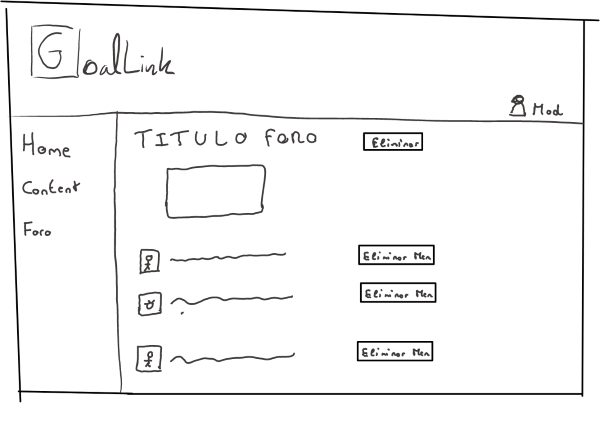 GoalLink
Mod
Home
Content
Foro
TITULO FORO
Eliminar
Eliminar Men
Eliminar Men
Eliminar Men